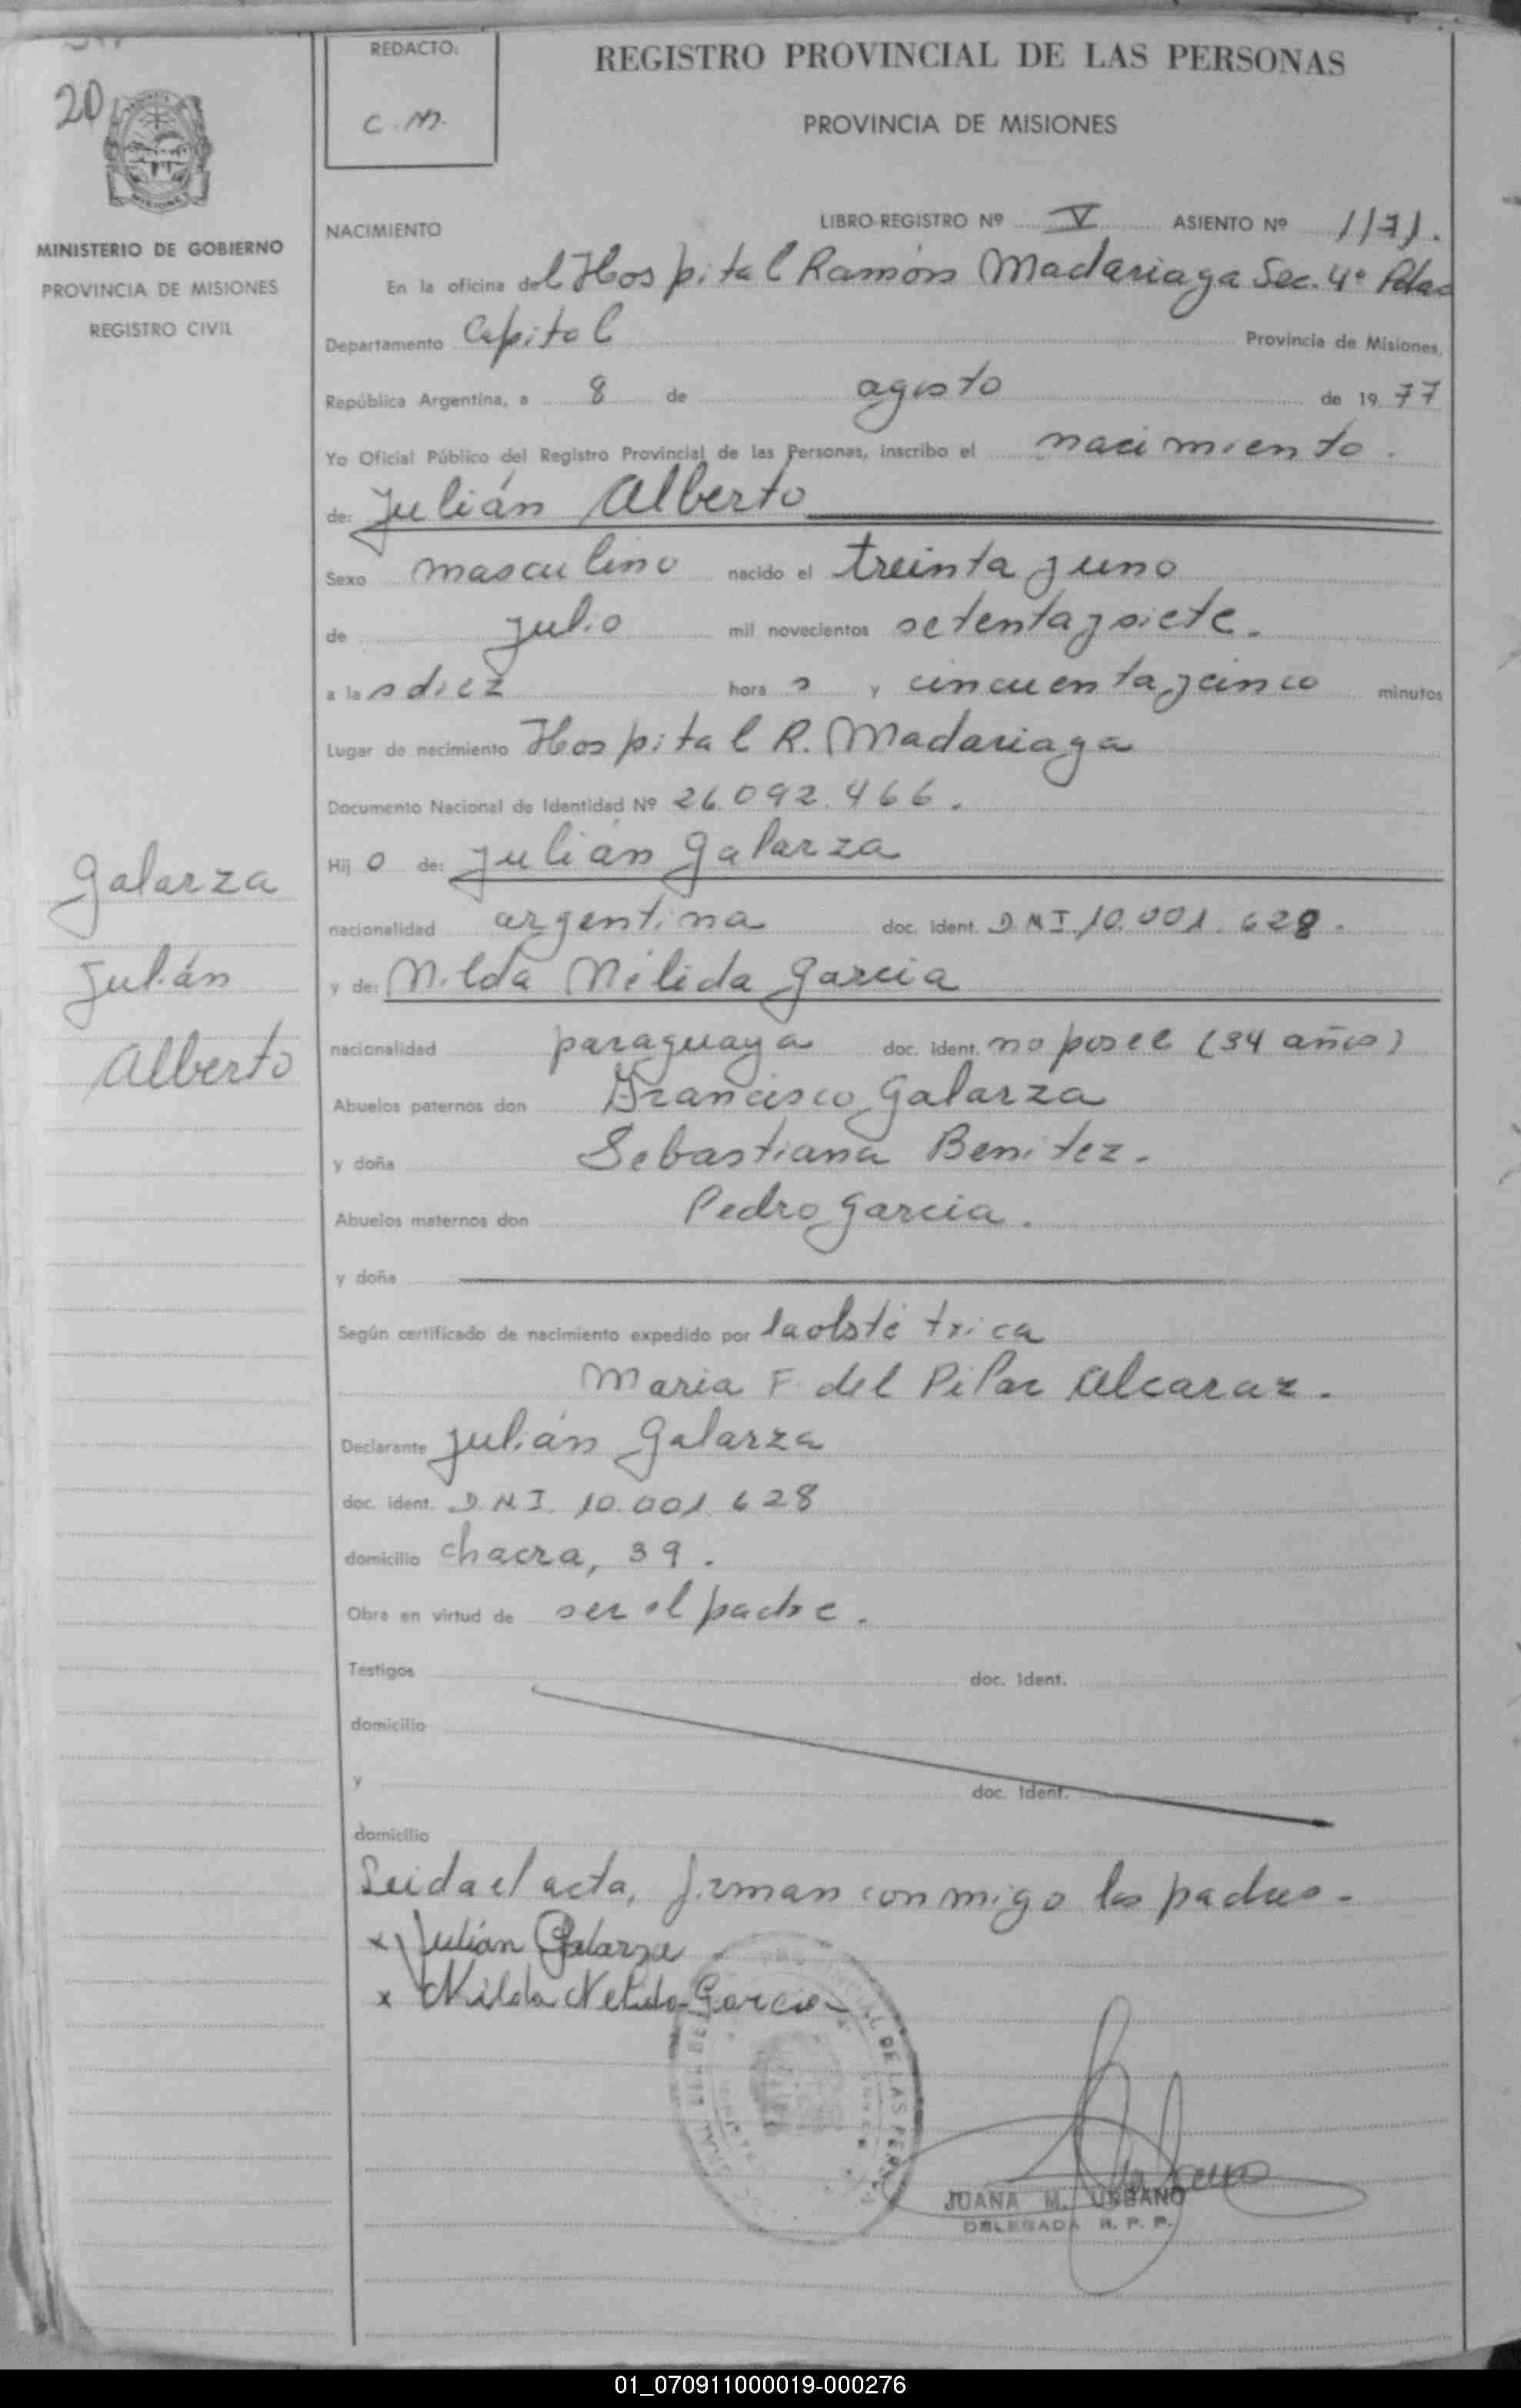 20
MISIONES
MINISTERIO DE GOBIERNO
PROVINCIA DE MISIONES
REGISTRO CIVIL
REDACTO:
C.M.
REGISTRO PROVINCIAL DE LAS PERSONAS
PROVINCIA DE MISIONES
NACIMIENTO
LIBRO-REGISTRO Nº V ASIENTO Nº 1171.
En la oficina del Hospital Ramón Madariaga Sec. 4º Pdas
Departamento Capital Provincia de Misiones,
República Argentina, a 8 de agosto de 1977
Yo Oficial Público del Registro Provincial de las Personas, inscribo el nacimiento.
de: Julián Alberto
Sexo masculino nacido el treinta y uno
de julio mil novecientos setenta y siete.
a las diez horas y cincuenta y cinco minutos
Lugar de nacimiento Hospital R. Madariaga
Documento Nacional de Identidad Nº 26.092.466.
Hijo de: Julián Galarza
nacionalidad argentina doc. ident. D.N.I. 10.001.628.
y de: Nilda Nélida Garcia
nacionalidad paraguaya doc. ident. no posee (34 años)
Abuelos paternos don Francisco Galarza
y doña Sebastiana Benitez.
Abuelos maternos don Pedro Garcia.
y doña
Según certificado de nacimiento expedido por la obstétrica
Maria F. del Pilar Alcaraz.
Declarante Julián Galarza
doc. ident. D.N.I. 10.001.628
domicilio chacra, 39.
Obra en virtud de ser el padre.
Testigos doc. Ident.
domicilio
y doc. Ident.
domicilio
Leida el acta, firman conmigo los padres.
x Julián Galarza
x Nilda Nelida Garcia
JUANA M. URBANO
DELEGADA R. P. P.
Galarza
Julián
Alberto
01_070911000019-000276